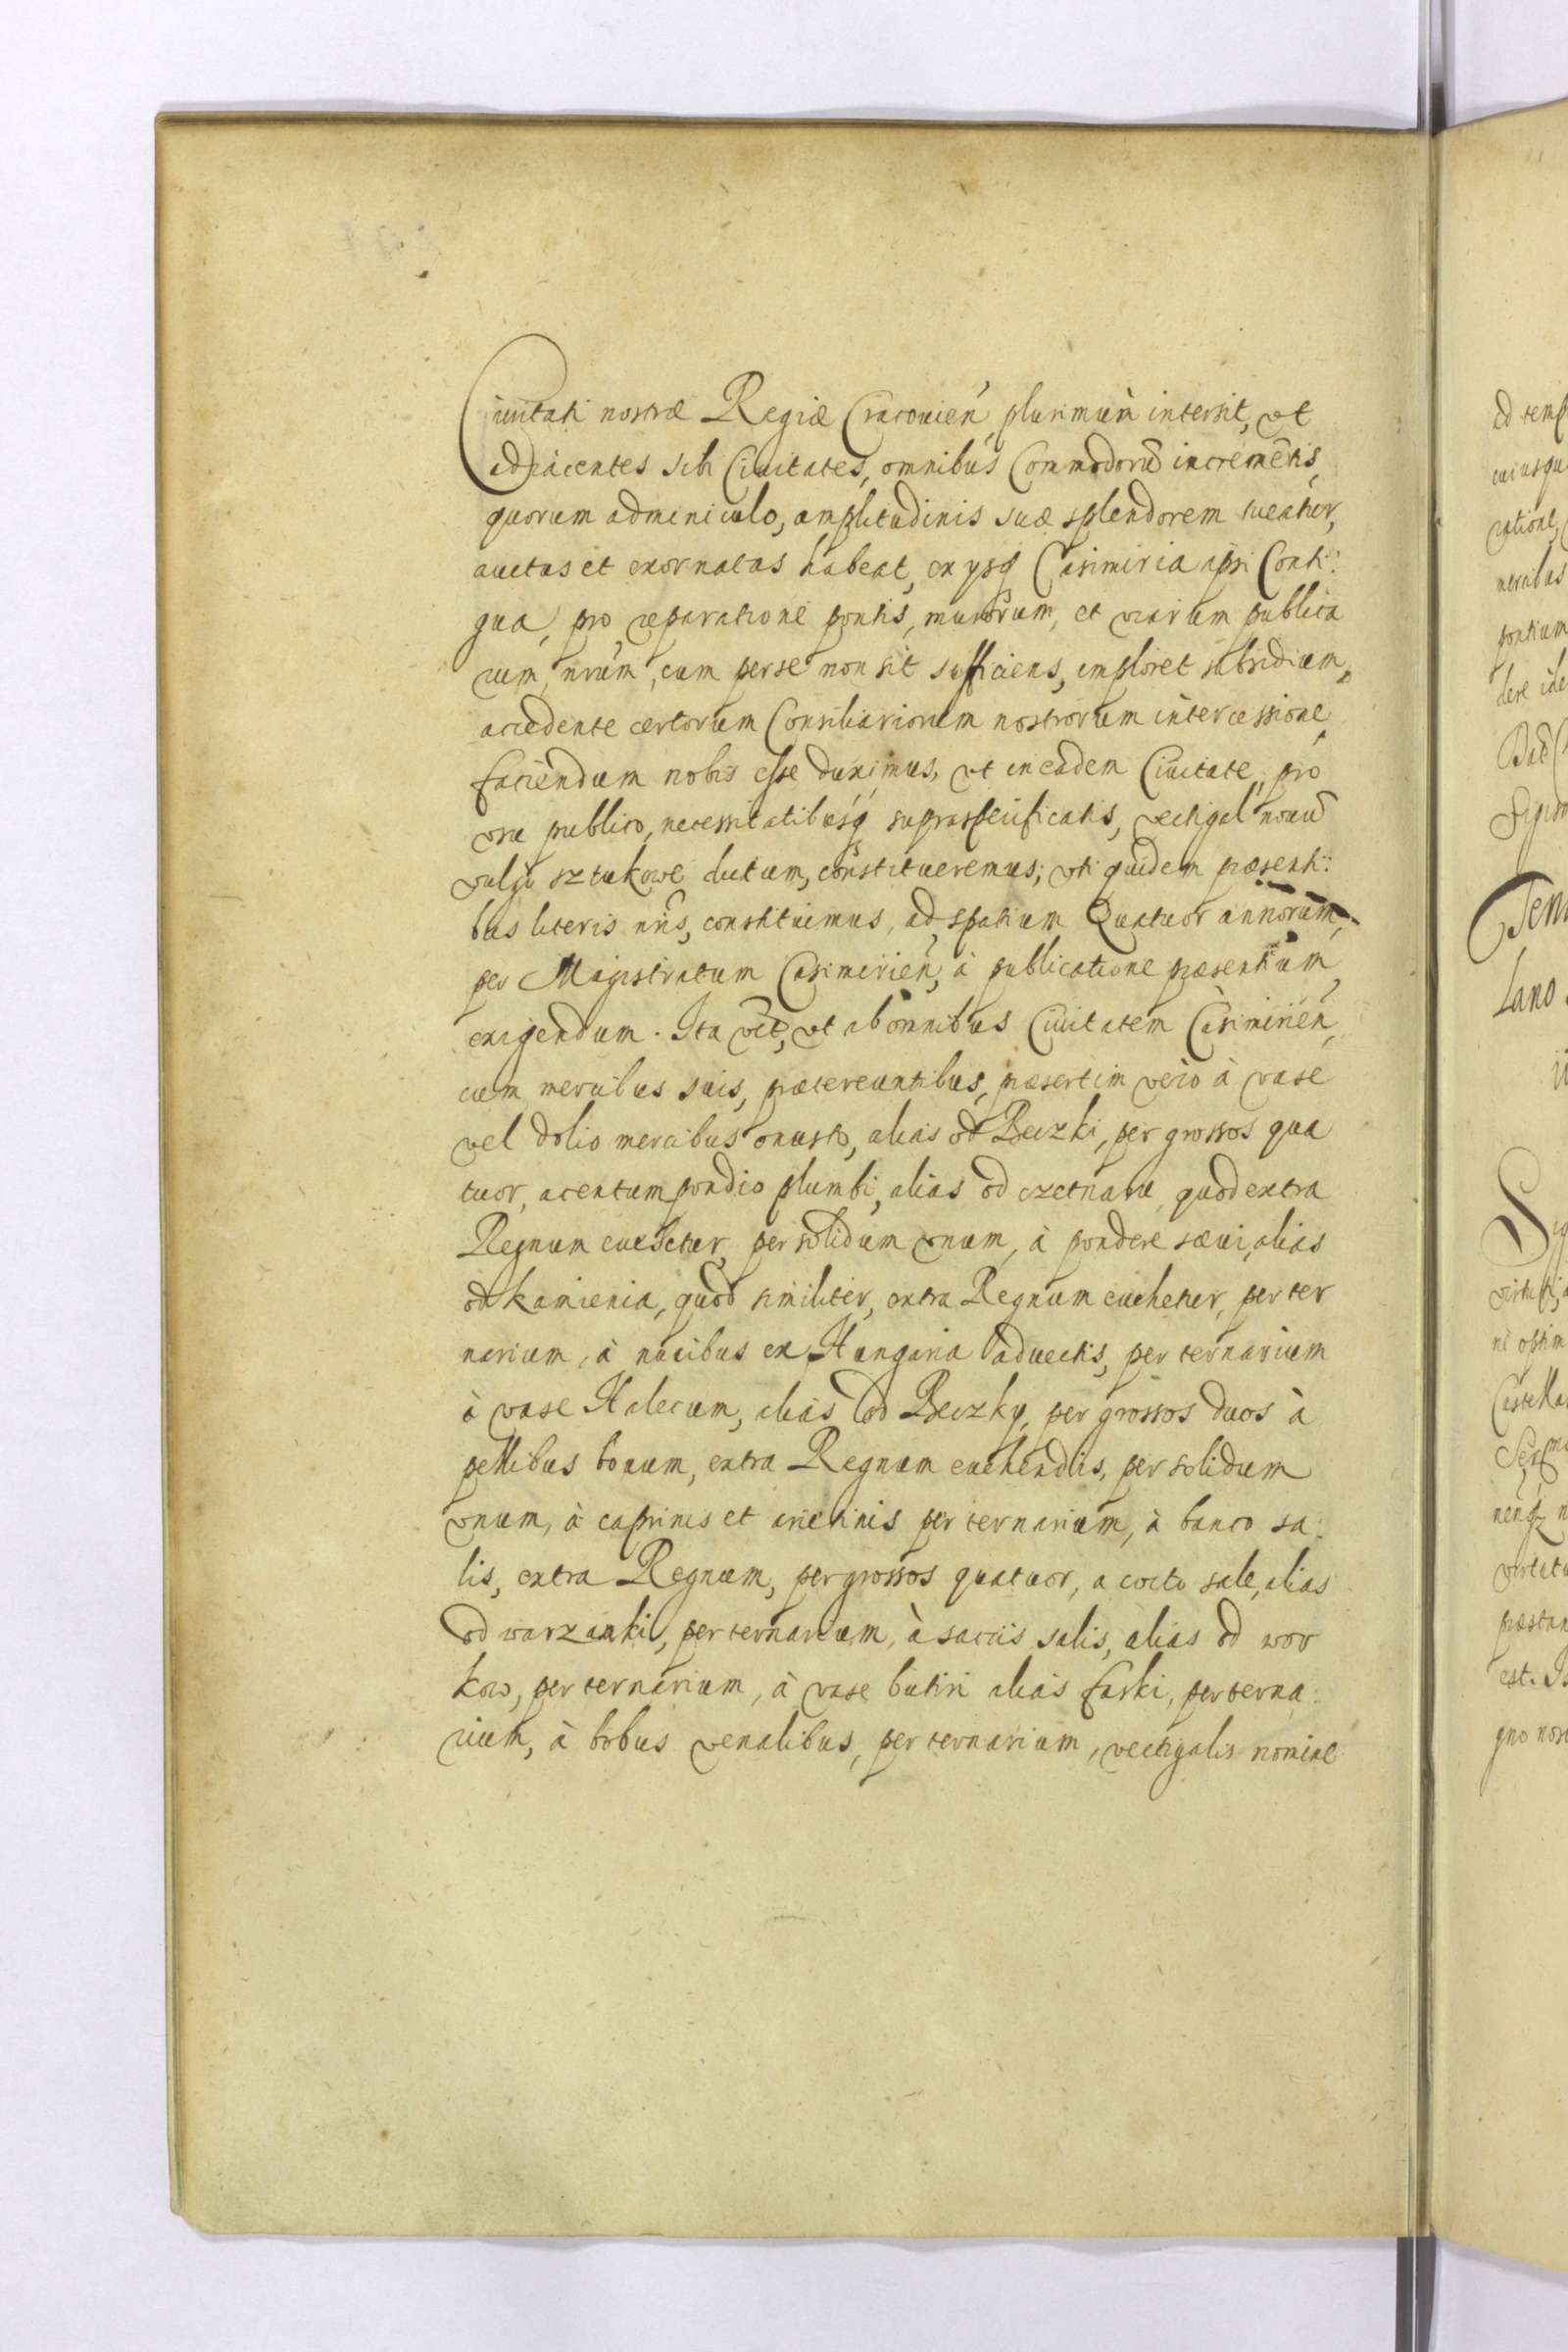 Ciuitati nostræ Regiæ Cracouien̄, plurimùm intersit, vt
adiacentes sibi Ciuitates, omnibus Commodorū incremētis,
quorum adminiculo, amplitudinis suæ splendorem tueatur,
auctas et exornatas habeat, ex ysq̨ Casimiria ipsi Conti:
gua, pro reparatione pontis, murorum, et viarum publica
rum, nr̄um, cum per se non sit sufficiens, imploret subsidium,
accedente certorum Consiliariorum nostrorum intercessione,
faciendum nobis esse duximus, vt in eadem Ciuitate, pro
vsu publico, necessitatibusq̨ supraspecificatis, vectigal nouū
vulgo sztukowe dictum, constitueremus; vti quidem præsenti:
bus literis nr̄is, constituimus, ad spatium Quatuor annorum,
per Magistratum Casimirien̄, à publicatione præsentium,
exigendum. Ita vt̄, vt ab omnibus Ciuitatem Casimirien̄,
cum mercibus suis, prætereuntibus, præsertim verò à vase
vel dolio mercibus onusto, alias od Beczki, per grossos qua
tuor, a centumpondio plumbi, alias od czetnaru, quod extra
Regnum euehetur, per solidum vnum, à pondere sæui, alias
od kamienia, quod similiter, extra Regnum euehetur, per ter
narium, à nucibus ex Hungaria aduectis, per ternarium
à vase Halecum, alias od Beczky, per grossos duos à
pellibus bouum, extra Regnum euehendis, per solidum
vnum, à caprinis et arietinis per ternarium, à banco sa:
lis, extra Regnum, per grossos quatuor, a cocto sale, alias
od warzanki, per ternarium, à saccis salis, alias od wor
kow, per ternarium, à vase butiri alias faski, per terna:
rium, à bobus venalibus, per ternarium, vectigalis nomine